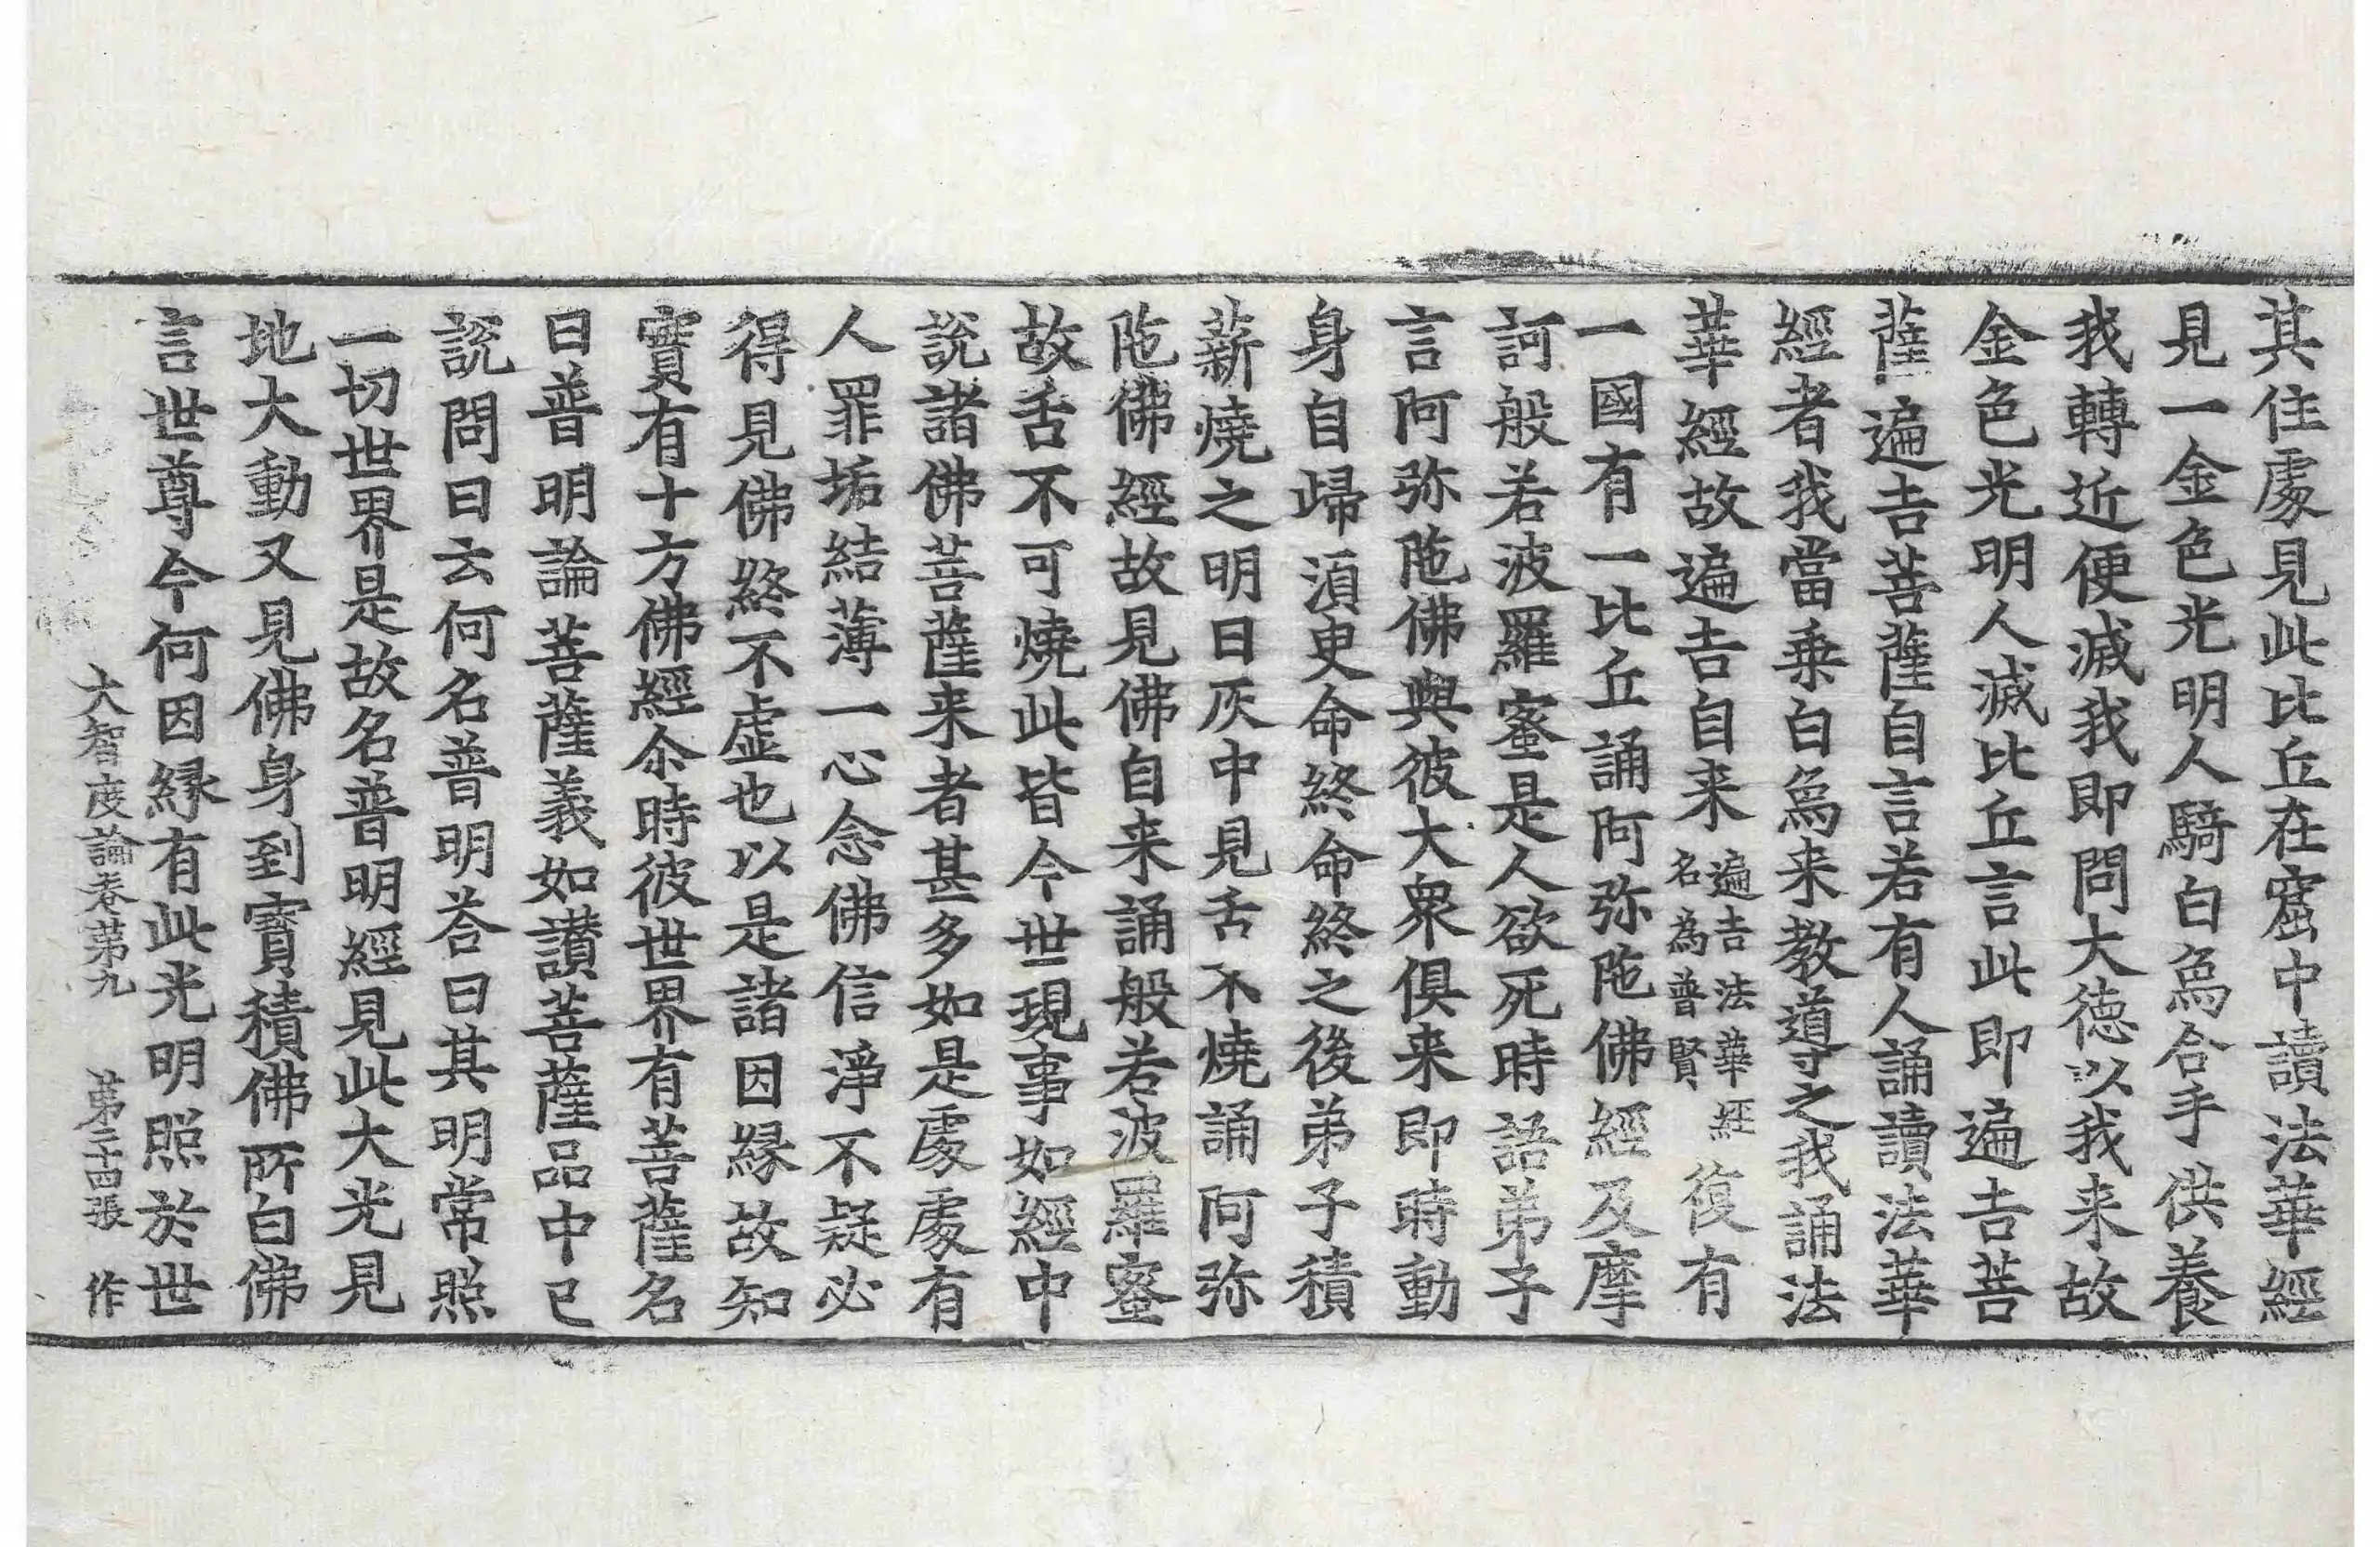 其住處見此比丘在窟中讀法華經
見一金色光明人騎白爲合手供養
我轉近便滅我即問大德以我来故
金色光明人滅比丘言此即遍吉菩
薩遍吉菩薩自言若有人誦讀法華
經者我當乗白爲来教導之我誦法
華經故遍吉自来遍吉法華經名為普賢復有
一國有一比丘誦阿弥陁佛經及摩
訶般若波羅蜜是人欲死時語弟子
言阿弥陁佛與彼大衆俱来即時動
身自歸湏臾命終命終之後弟子積
薪燒之明日灰中見舌不燒誦阿弥
陁佛經故見佛自来誦般若波羅蜜
故舌不可燒此皆今世現事如經中
說諸佛菩薩来者甚多如是處處有
人罪垢結薄一心念佛信淨不疑必
得見佛終不虛也以是諸因縁故知
實有十方佛經尒時彼世界有菩薩名
曰普明論菩薩義如讃菩薩品中已
說問曰云何名普明荅曰其明常照
一切世界是故名普明經見此大光見
地大動又見佛身到寶積佛所白佛
言世尊今何因縁有此光明照於世
大智度論卷第九 第二十四張 作